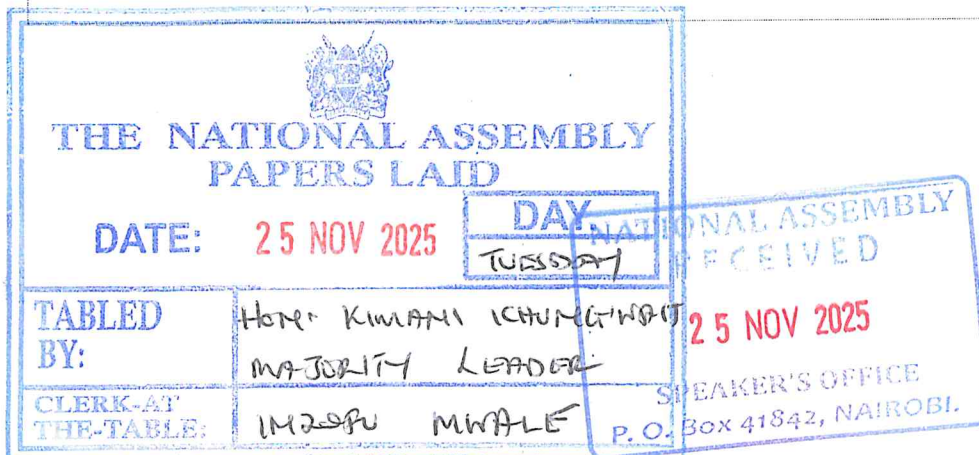 THE NATIONAL ASSEMBLY
PAPERS LAID
DATE: 25 NOV 2025
DAY
TUESDAY
TABLED BY:
HON. KIMANI ICHUNG'WAH
MAJORITY LEADER
CLERK-AT THE-TABLE:
MWALE
NATIONAL ASSEMBLY
RECEIVED
25 NOV 2025
SPEAKER'S OFFICE
P. O. Box 41842, NAIROBI.